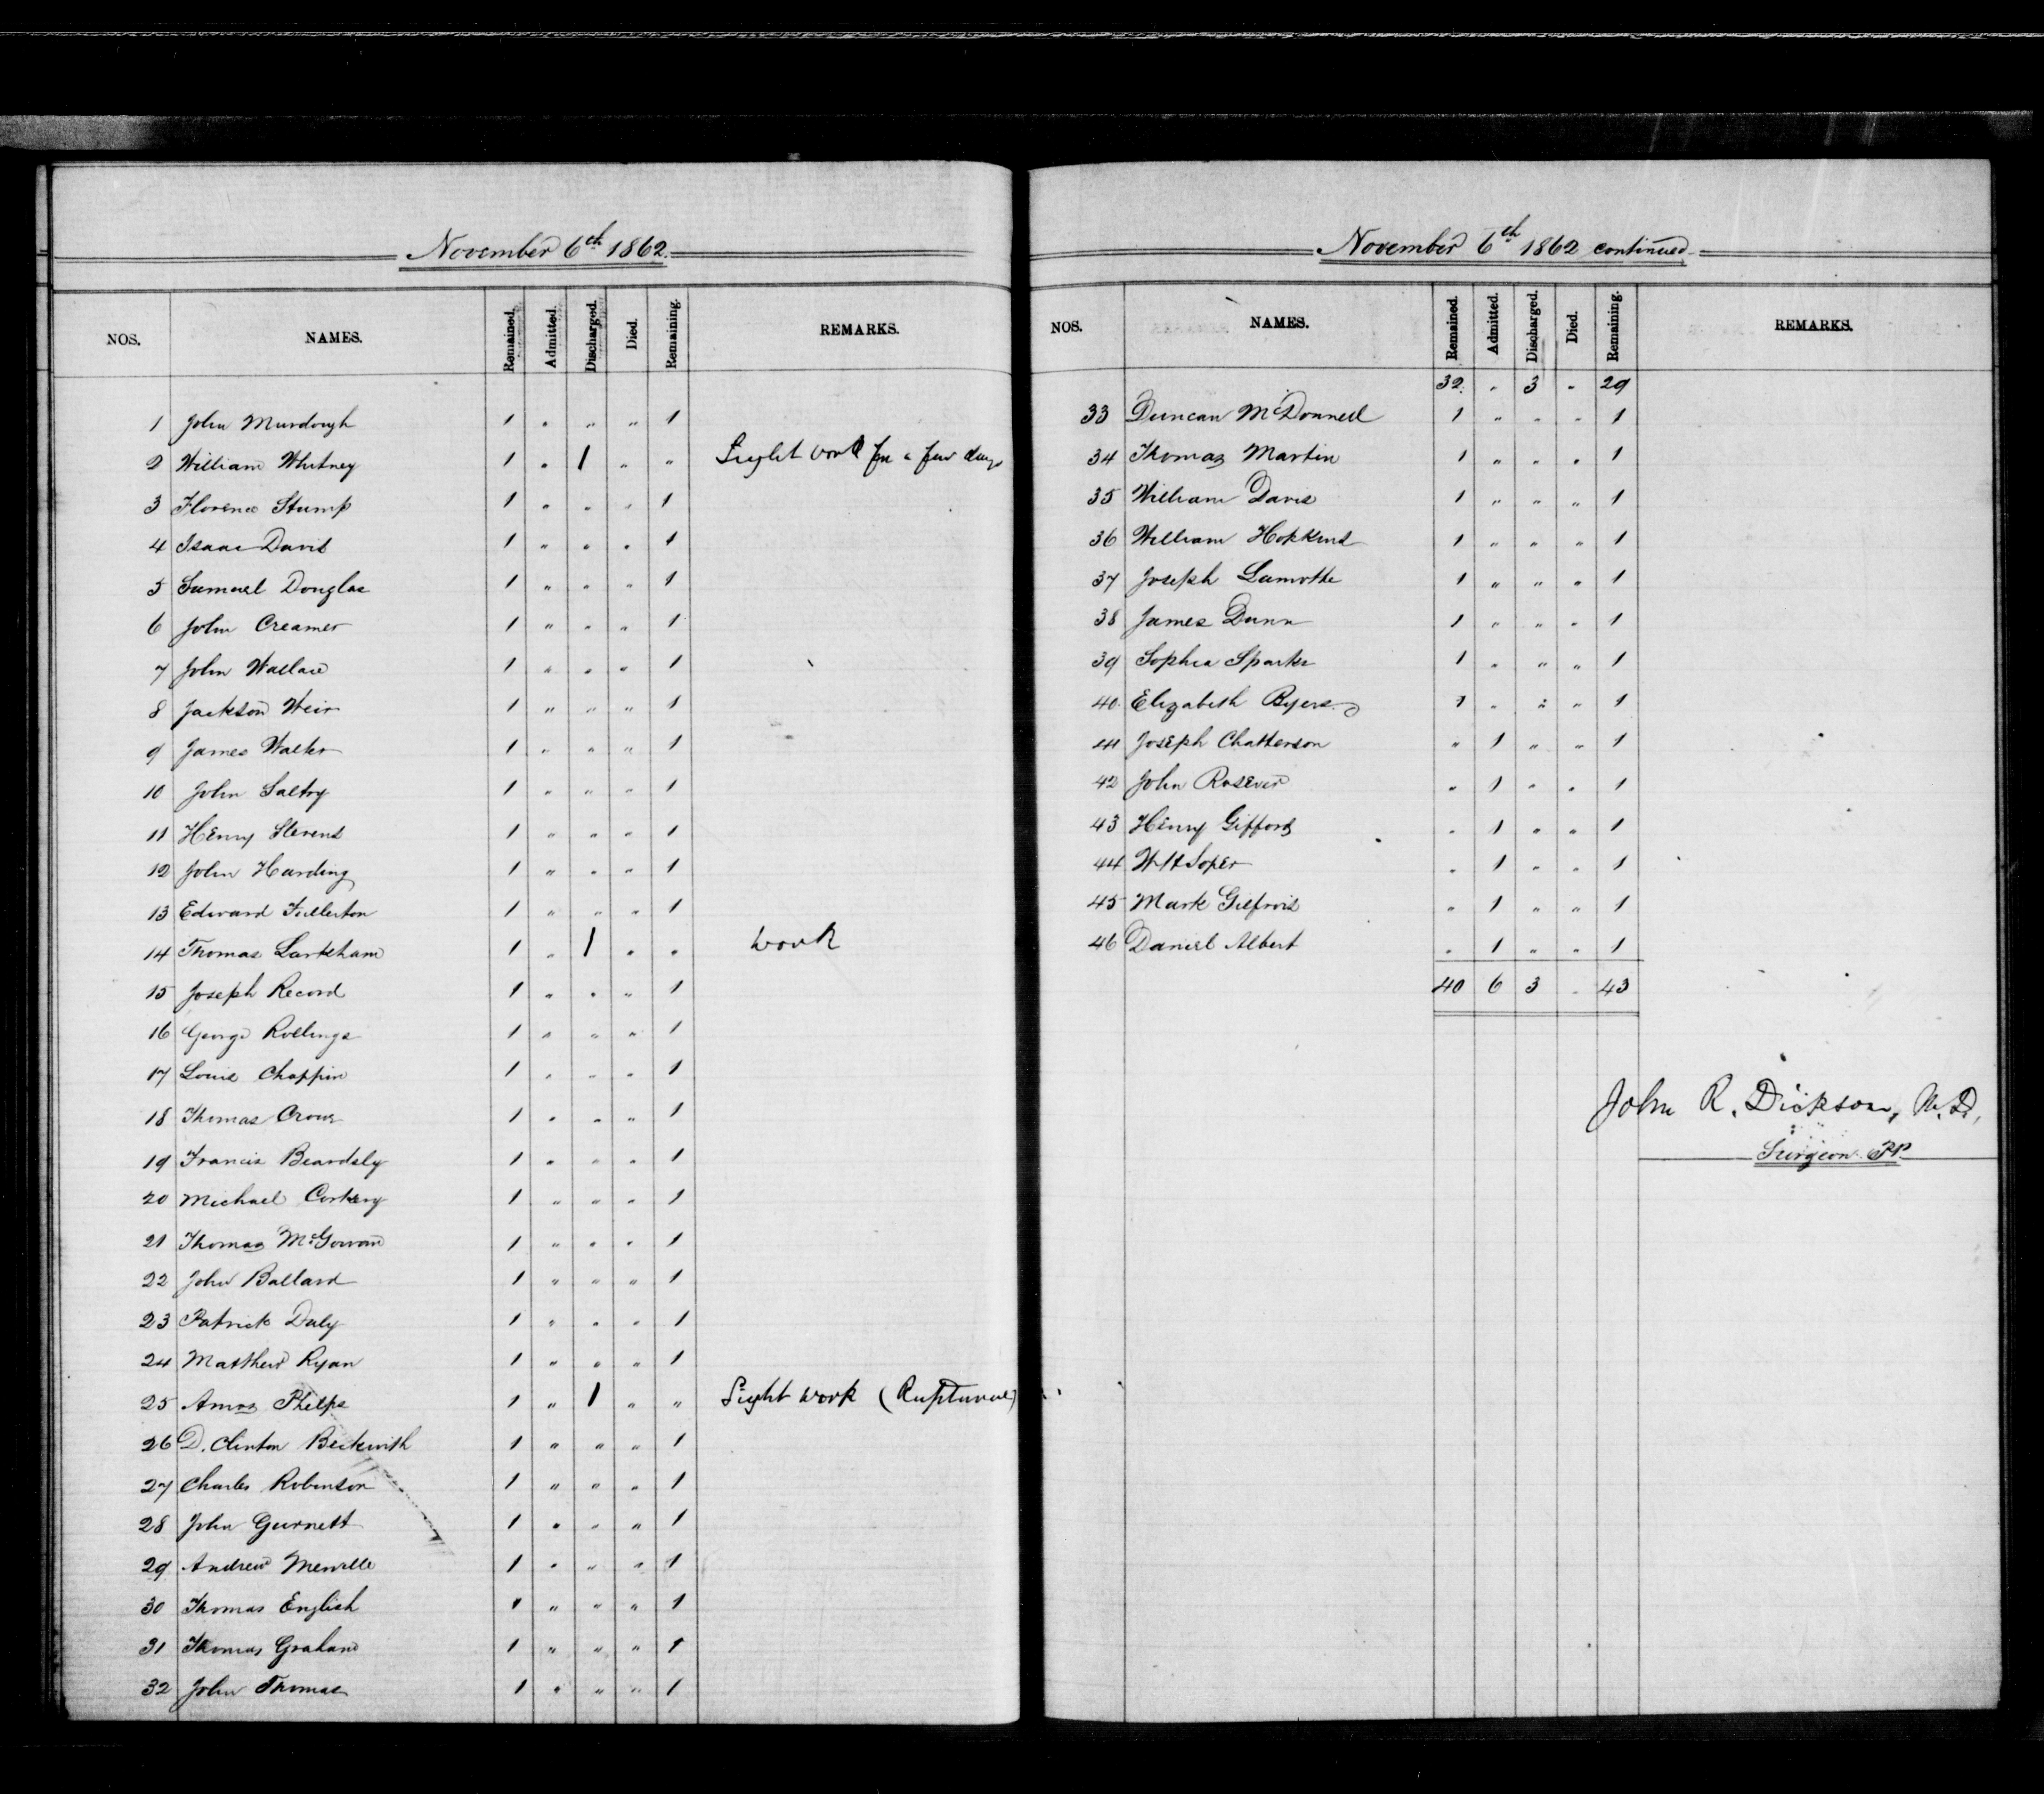 November 6th 1862.
NOS. NAMES. Remained. Admitted. Discharged. Died. Remaining. REMARKS.
1 John Murdough 1 " " " 1
2 William Whitney 1 " 1 " " Light work for a few days
3 Florence Stump 1 " " " 1
4 Isaac Davis 1 " " " 1
5 Samuel Douglas 1 " " " 1
6 John Creamer 1 " " " 1
7 John Wallace 1 " " " 1
8 Jackson Weir 1 " " " 1
9 James Walker 1 " " " 1
10 John Saltry 1 " " " 1
11 Henry Stevens 1 " " " 1
12 John Harding 1 " " " 1
13 Edward Fullerton 1 " " " 1
14 Thomas Larkham 1 " 1 " " Work
15 Joseph Record 1 " " " 1
16 George Rollings 1 " " " 1
17 Louis Chappin 1 " " " 1
18 Thomas Crow 1 " " " 1
19 Francis Beardsly 1 " " " 1
20 Michael Corkery 1 " " " 1
21 Thomas McGowan 1 " " " 1
22 John Ballard 1 " " " 1
23 Patrick Daly 1 " " " 1
24 Matthew Ryan 1 " " " 1
25 Amos Phelps 1 " 1 " " Light work (Ruptured)
26 D. Clinton Beckwith 1 " " " 1
27 Charles Robinson 1 " " " 1
28 John Gurnett 1 " " " 1
29 Andrew 1 " " " 1
30 Thomas English 1 " " " 1
31 Thomas Graham 1 " " " 1
32 John Thomas 1 " " " 1
November 6th 1862 continued
NOS. NAMES. Remained. Admitted. Discharged. Died. Remaining. REMARKS.
32 " 3 " 29
33 Duncan McDonnell 1 " " " 1
34 Thomas Martin 1 " " " 1
35 William Davis 1 " " " 1
36 William Hopkins 1 " " " 1
37 Joseph Lamothe 1 " " " 1
38 James Dunn 1 " " " 1
39 Sophia Sparks 1 " " " 1
40 Elizabeth Byers 1 " " " 1
41 Joseph Chatterson " 1 " " 1
42 John Rosever " 1 " " 1
43 Henry Gifford " 1 " " 1
44 WH Soper " 1 " " 1
45 Mark " 1 " " 1
46 Daniel Albert " 1 " " 1
40 6 3 " 43
John R. Dickson, M.D.
Surgeon PP.